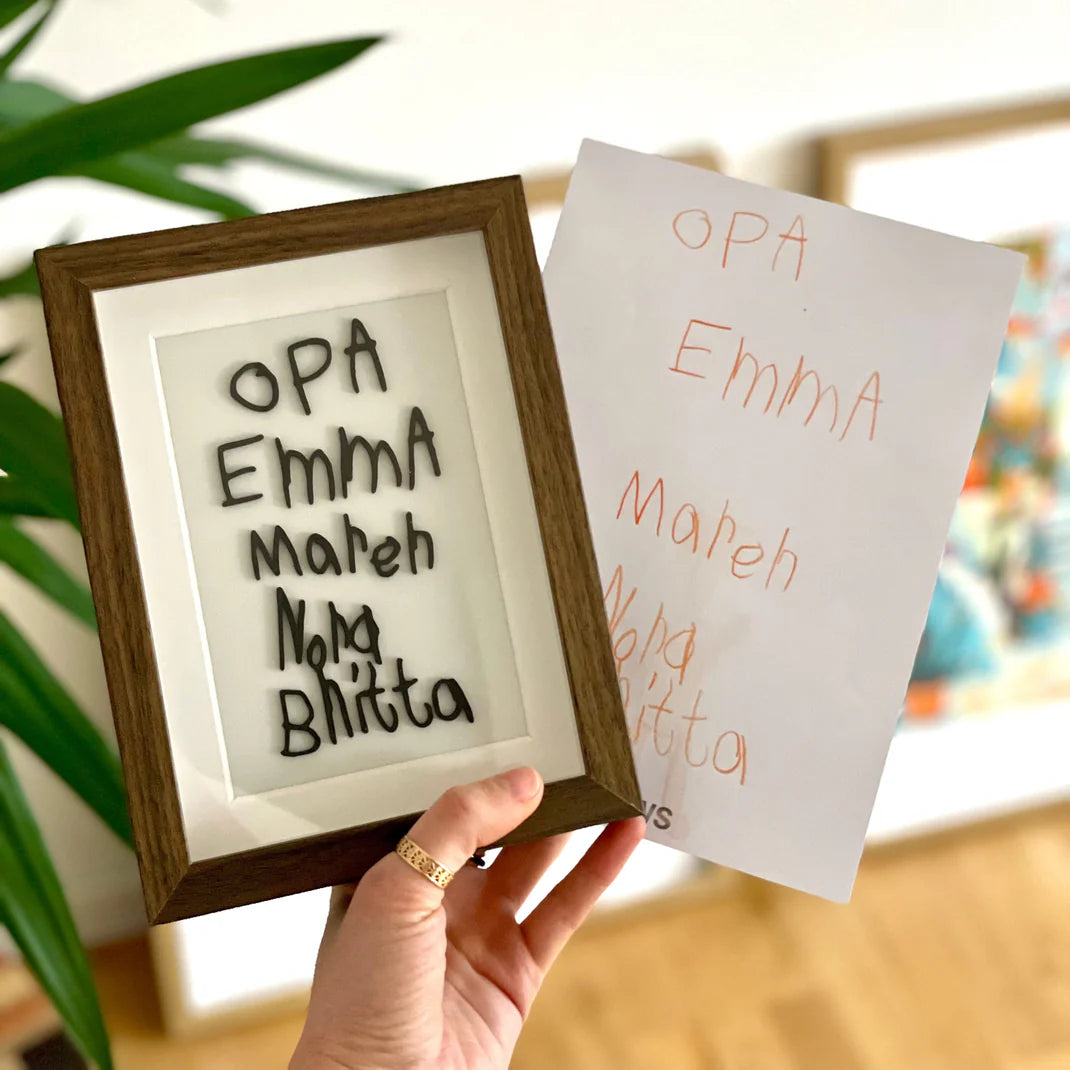 OPA
EmmA
Mareh
Nora
Bhitta
OPA
EmmA
Mareh
Nora
itta